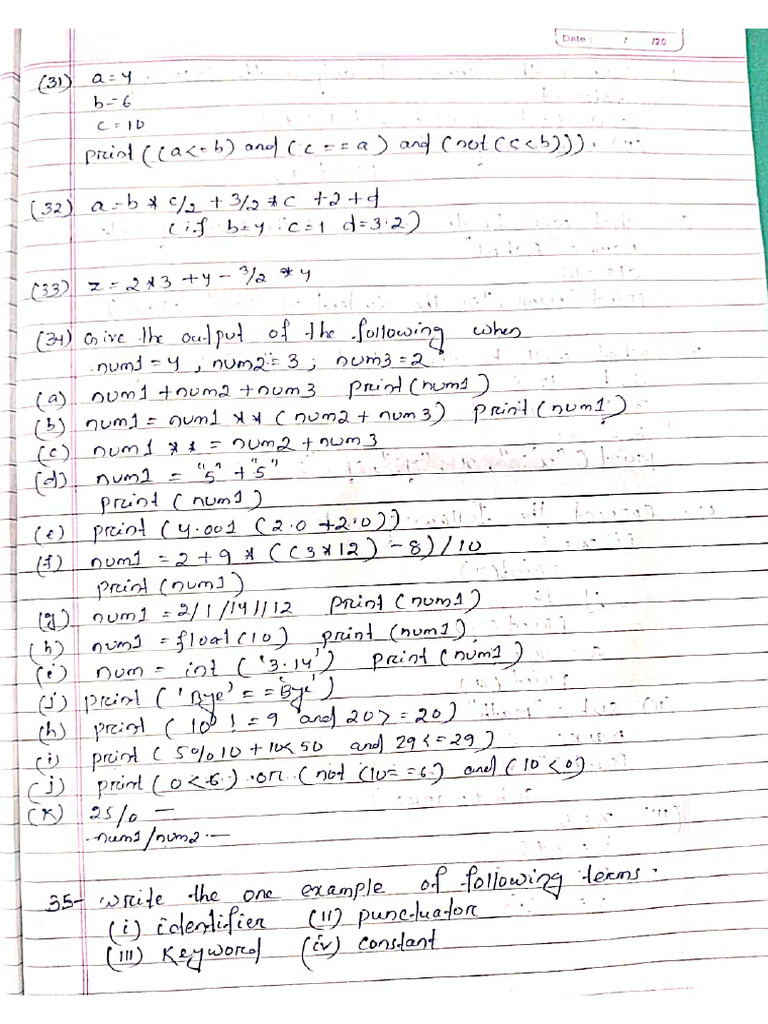 Date: / /20
(31) a=4
b=6
c=10
print((a<=b) and (c==a) and (not(c<b))).
(32) a=b*c/2+3/2*c+2+d
(if b=4 c=1 d=3.2)
(33) z=2*3+4-3/2*4
(34) Give the output of the following when
num1=4, num2=3, num3=2
(a) num1+num2+num3 print(num1)
(b) num1=num1**(num2+num3) print(num1)
(c) num1**=num2+num3
(d) num1="5"+"5"
print(num1)
(e) print(4.001(2.0+2.0))
(f) num1=2+9*((3*12)-8)/10
print(num1)
(g) num1=2/1/14//12 print(num1)
(h) num1=float(10) print(num1)
(i) num=int('3.14') print(num1)
(j) print('Bye'=='Bye')
(h) print(10!=9 and 20>=20)
(i) print(5%10+10<50 and 29<=29)
(j) print(0<6) or (not(10==6) and (10<0)
(k) 25/0 —
num1/num2 —
35- write the one example of following terms.
(i) identifier (ii) punctuator
(iii) Keyword (iv) constant